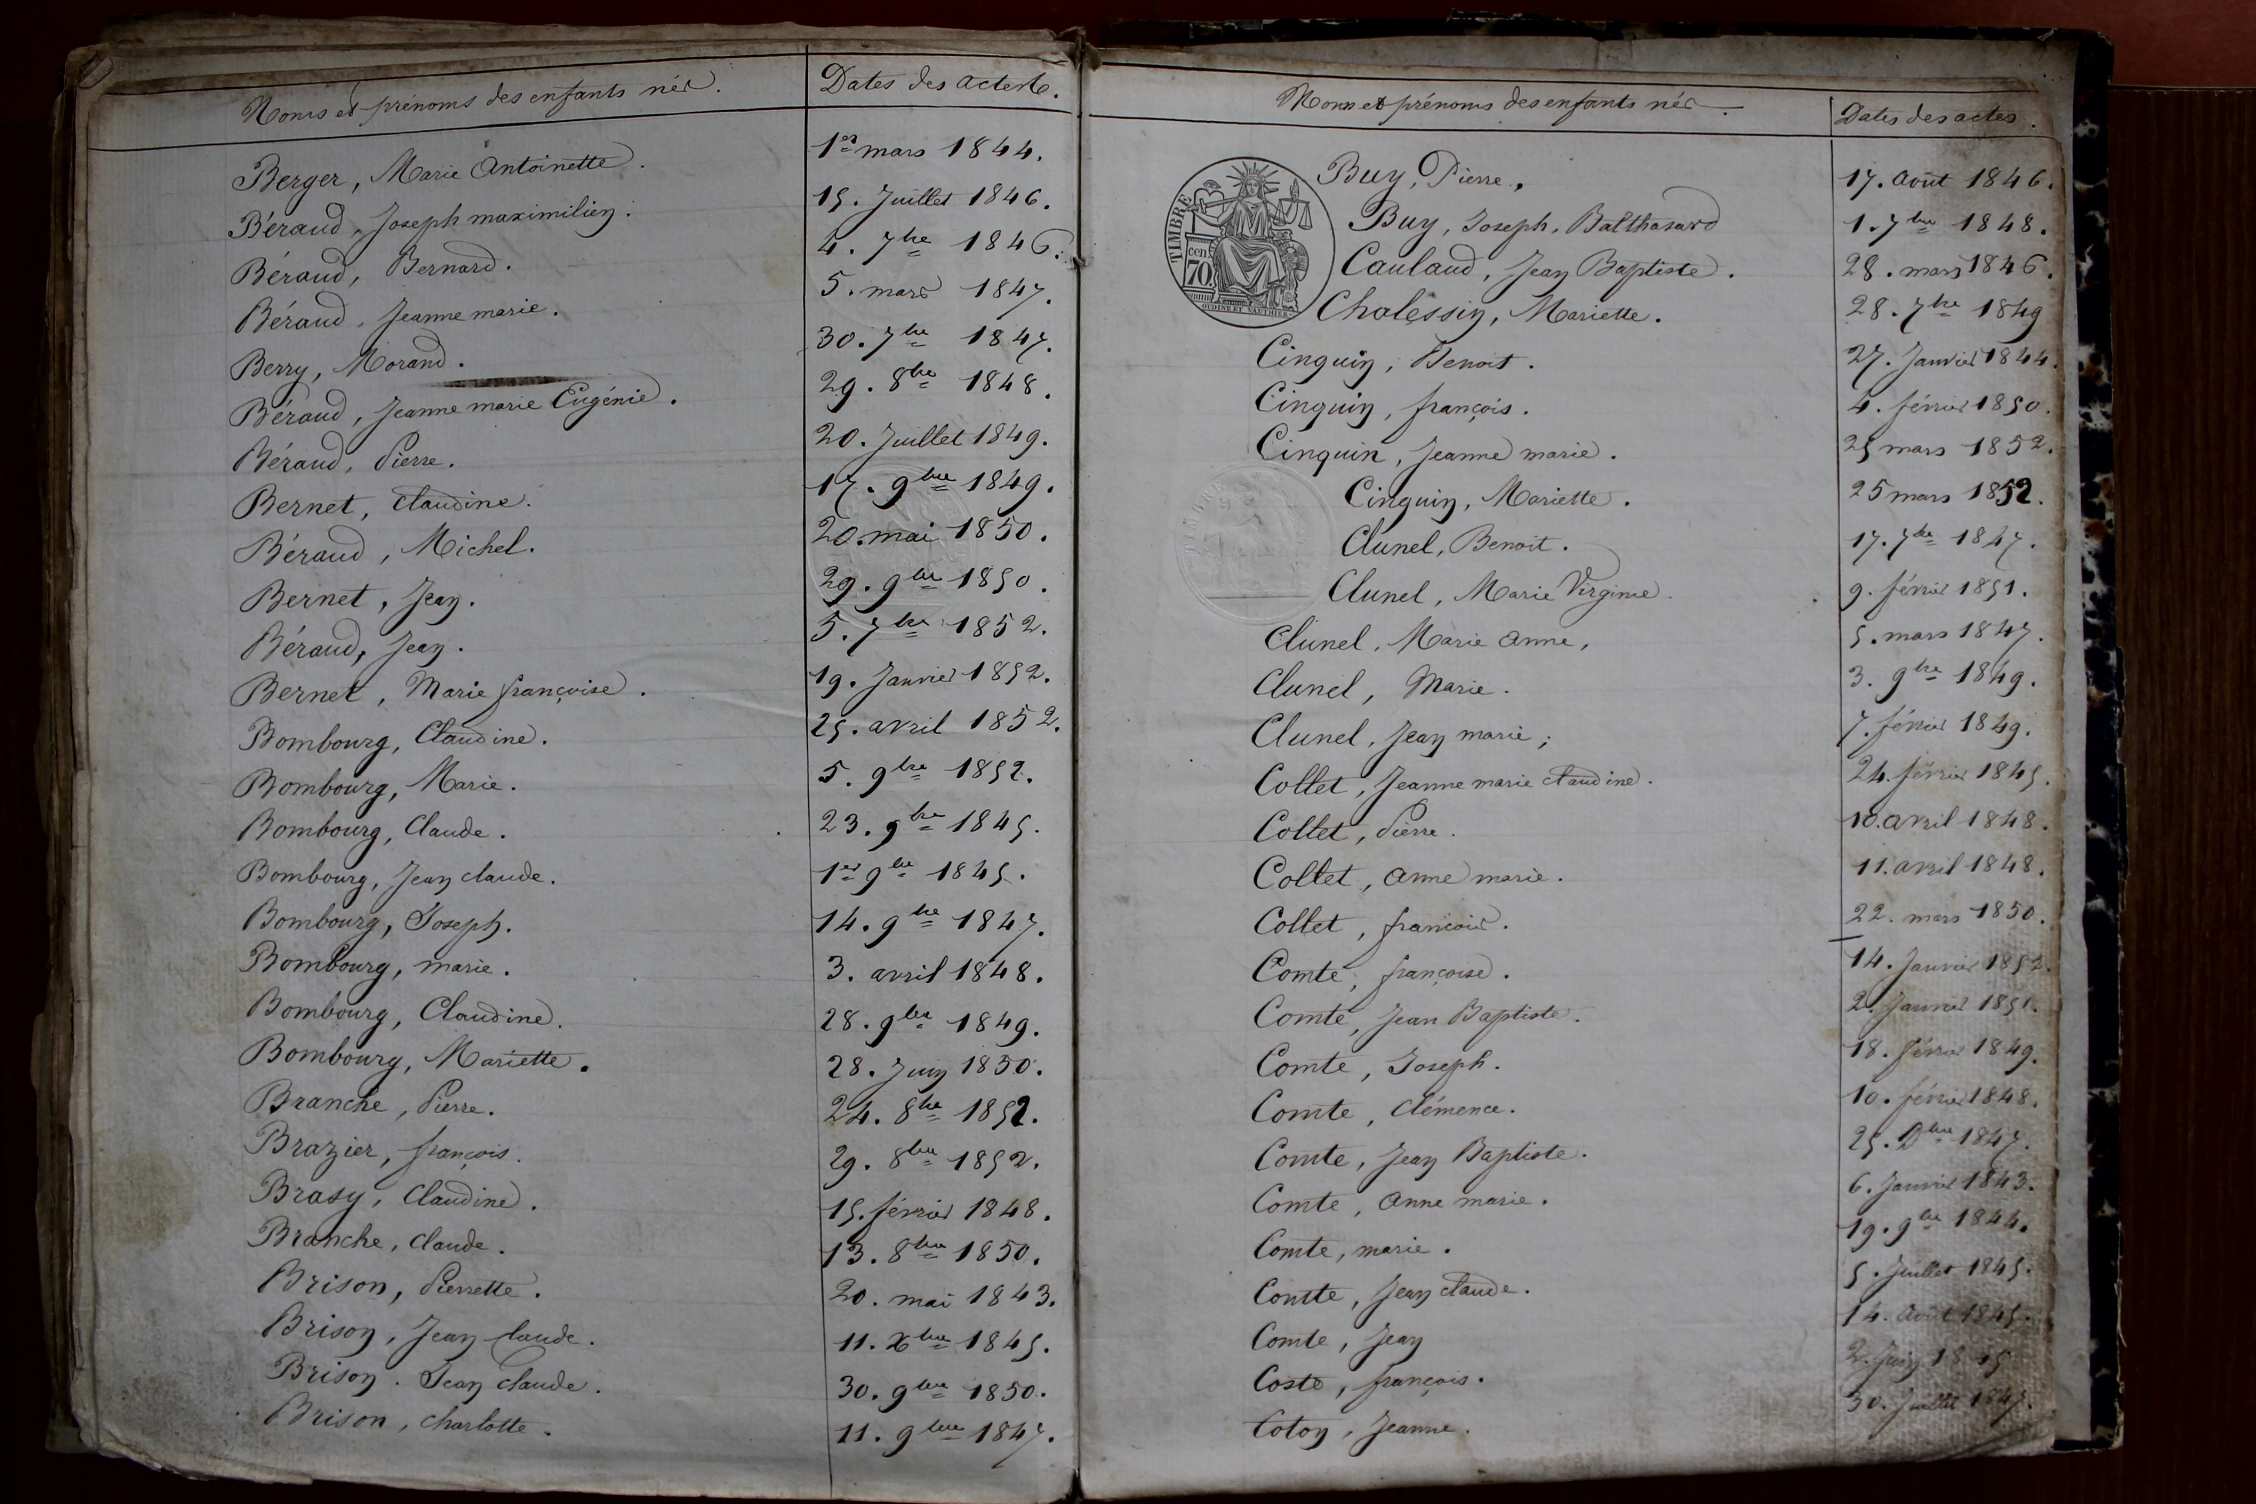 Noms et prénoms des enfants nés. Dates des actes.
Berger, Marie Antoinette. 1er mars 1844.
Béraud, Joseph maximilien. 15. Juillet 1846.
Béraud, Bernard. 4. 7bre 1846.
Béraud, Jeanne marie. 5. mars 1847.
Berry, Morand. 30. 7bre 1847.
Béraud, Jeanne marie Eugénie. 29. 8bre 1848.
Béraud, Pierre. 20. Juillet 1849.
Bernet, Claudine. 17. 9bre 1849.
Béraud, Michel. 20. mai 1850.
Bernet, Jean. 29. 9bre 1850.
Béraud, Jean. 5. 7bre 1852.
Bernet, Marie françoise. 19. Janvier 1852.
Bombourg, Claudine. 25. avril 1852.
Bombourg, Marie. 5. 9bre 1852.
Bombourg, Claude. 23. 9bre 1845.
Bombourg, Jean claude. 1er 9bre 1845.
Bombourg, Joseph. 14. 9bre 1847.
Bombourg, marie. 3. avril 1848.
Bombourg, Claudine. 28. 9bre 1849.
Bombourg, Mariette. 28. Juin 1850.
Branche, Pierre. 24. 8bre 1852.
Brazier, françois. 29. 8bre 1852.
Brasy, Claudine. 15. février 1848.
Branche, claude. 13. 8bre 1850.
Brison, Pierrette. 20. mai 1843.
Brison, Jean Claude. 11. Xbre 1845.
Brison. Jean claude. 30. 9bre 1850.
Brison, charlotte. 11. 9bre 1847.
Noms et prénoms des enfants nés. Dates des actes.
Buy, Pierre. 17. août 1846.
Buy, Joseph, Balthasard 1. 7bre 1848.
Caulaud, Jean Baptiste. 28. mars 1846.
Chalessin, Mariette. 28. 7bre 1849
Cinquin, Benoit. 27. Janvier 1844.
Cinquin, françois. 4. février 1850.
Cinquin, Jeanne marie. 25 mars 1852.
Cinquin, Mariette. 25 mars 1852.
Clunel, Benoit. 17. 7bre 1847.
Clunel, Marie Virginie. 9. février 1851.
Clunel, Marie anne, 5. mars 1847.
Clunel, Marie. 3. 9bre 1849.
Clunel, Jean marie; 7. février 1849.
Collet, Jeanne marie claudine. 24. février 1845.
Collet, Pierre. 10. avril 1848.
Collet, anne marie. 11. avril 1848.
Collet, francois. 22. mars 1850.
Comte, françoise. 14. Janvier 1852.
Comte, Jean Baptiste. 2. Janvier 1851.
Comte, Joseph. 18. février 1849.
Comte, Clémence. 10. février 1848.
Comte, Jean Baptiste. 25. Dbre 1847.
Comte, anne marie. 6. Janvier 1843.
Comte, marie. 19. 9bre 1844.
Comte, Jean claude. 5. Juillet 1845.
Comte, Jean 14. août 1845.
Coste, françois. 2. Juin 1845
Coton, Jeanne. 30. Juillet 1847.
TIMBRE
cen.
70
OUDINE ET GAUTHIER